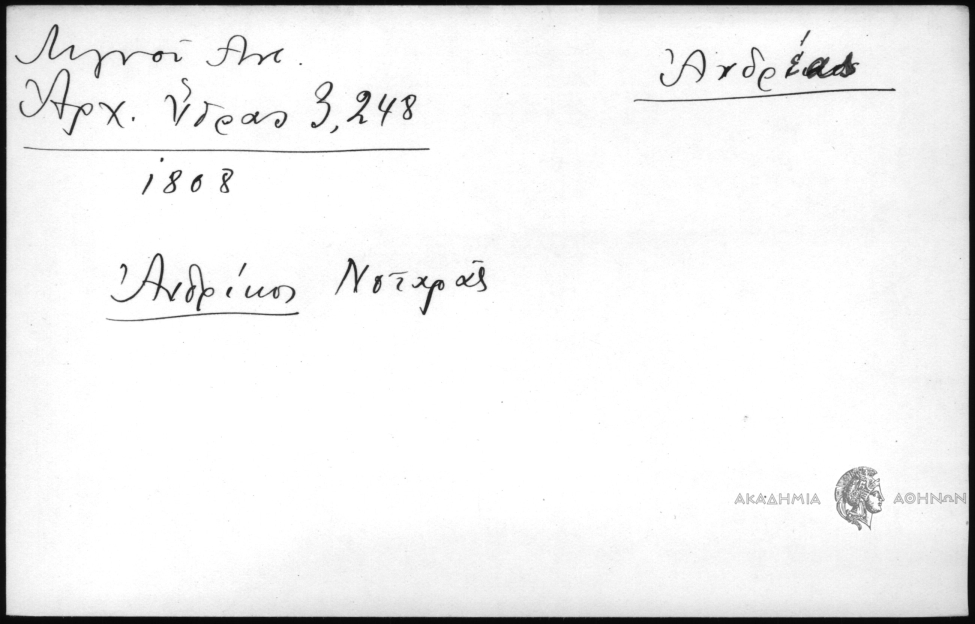 Λιγνοῦ Ἀντ.
Ἀρχ. Ὕδρας 3,248
Ἀνδρέας
1808
Ἀνδρίκος Νοταρᾶς
ΑΚΑΔΗΜΙΑ ΑΘΗΝΩΝ